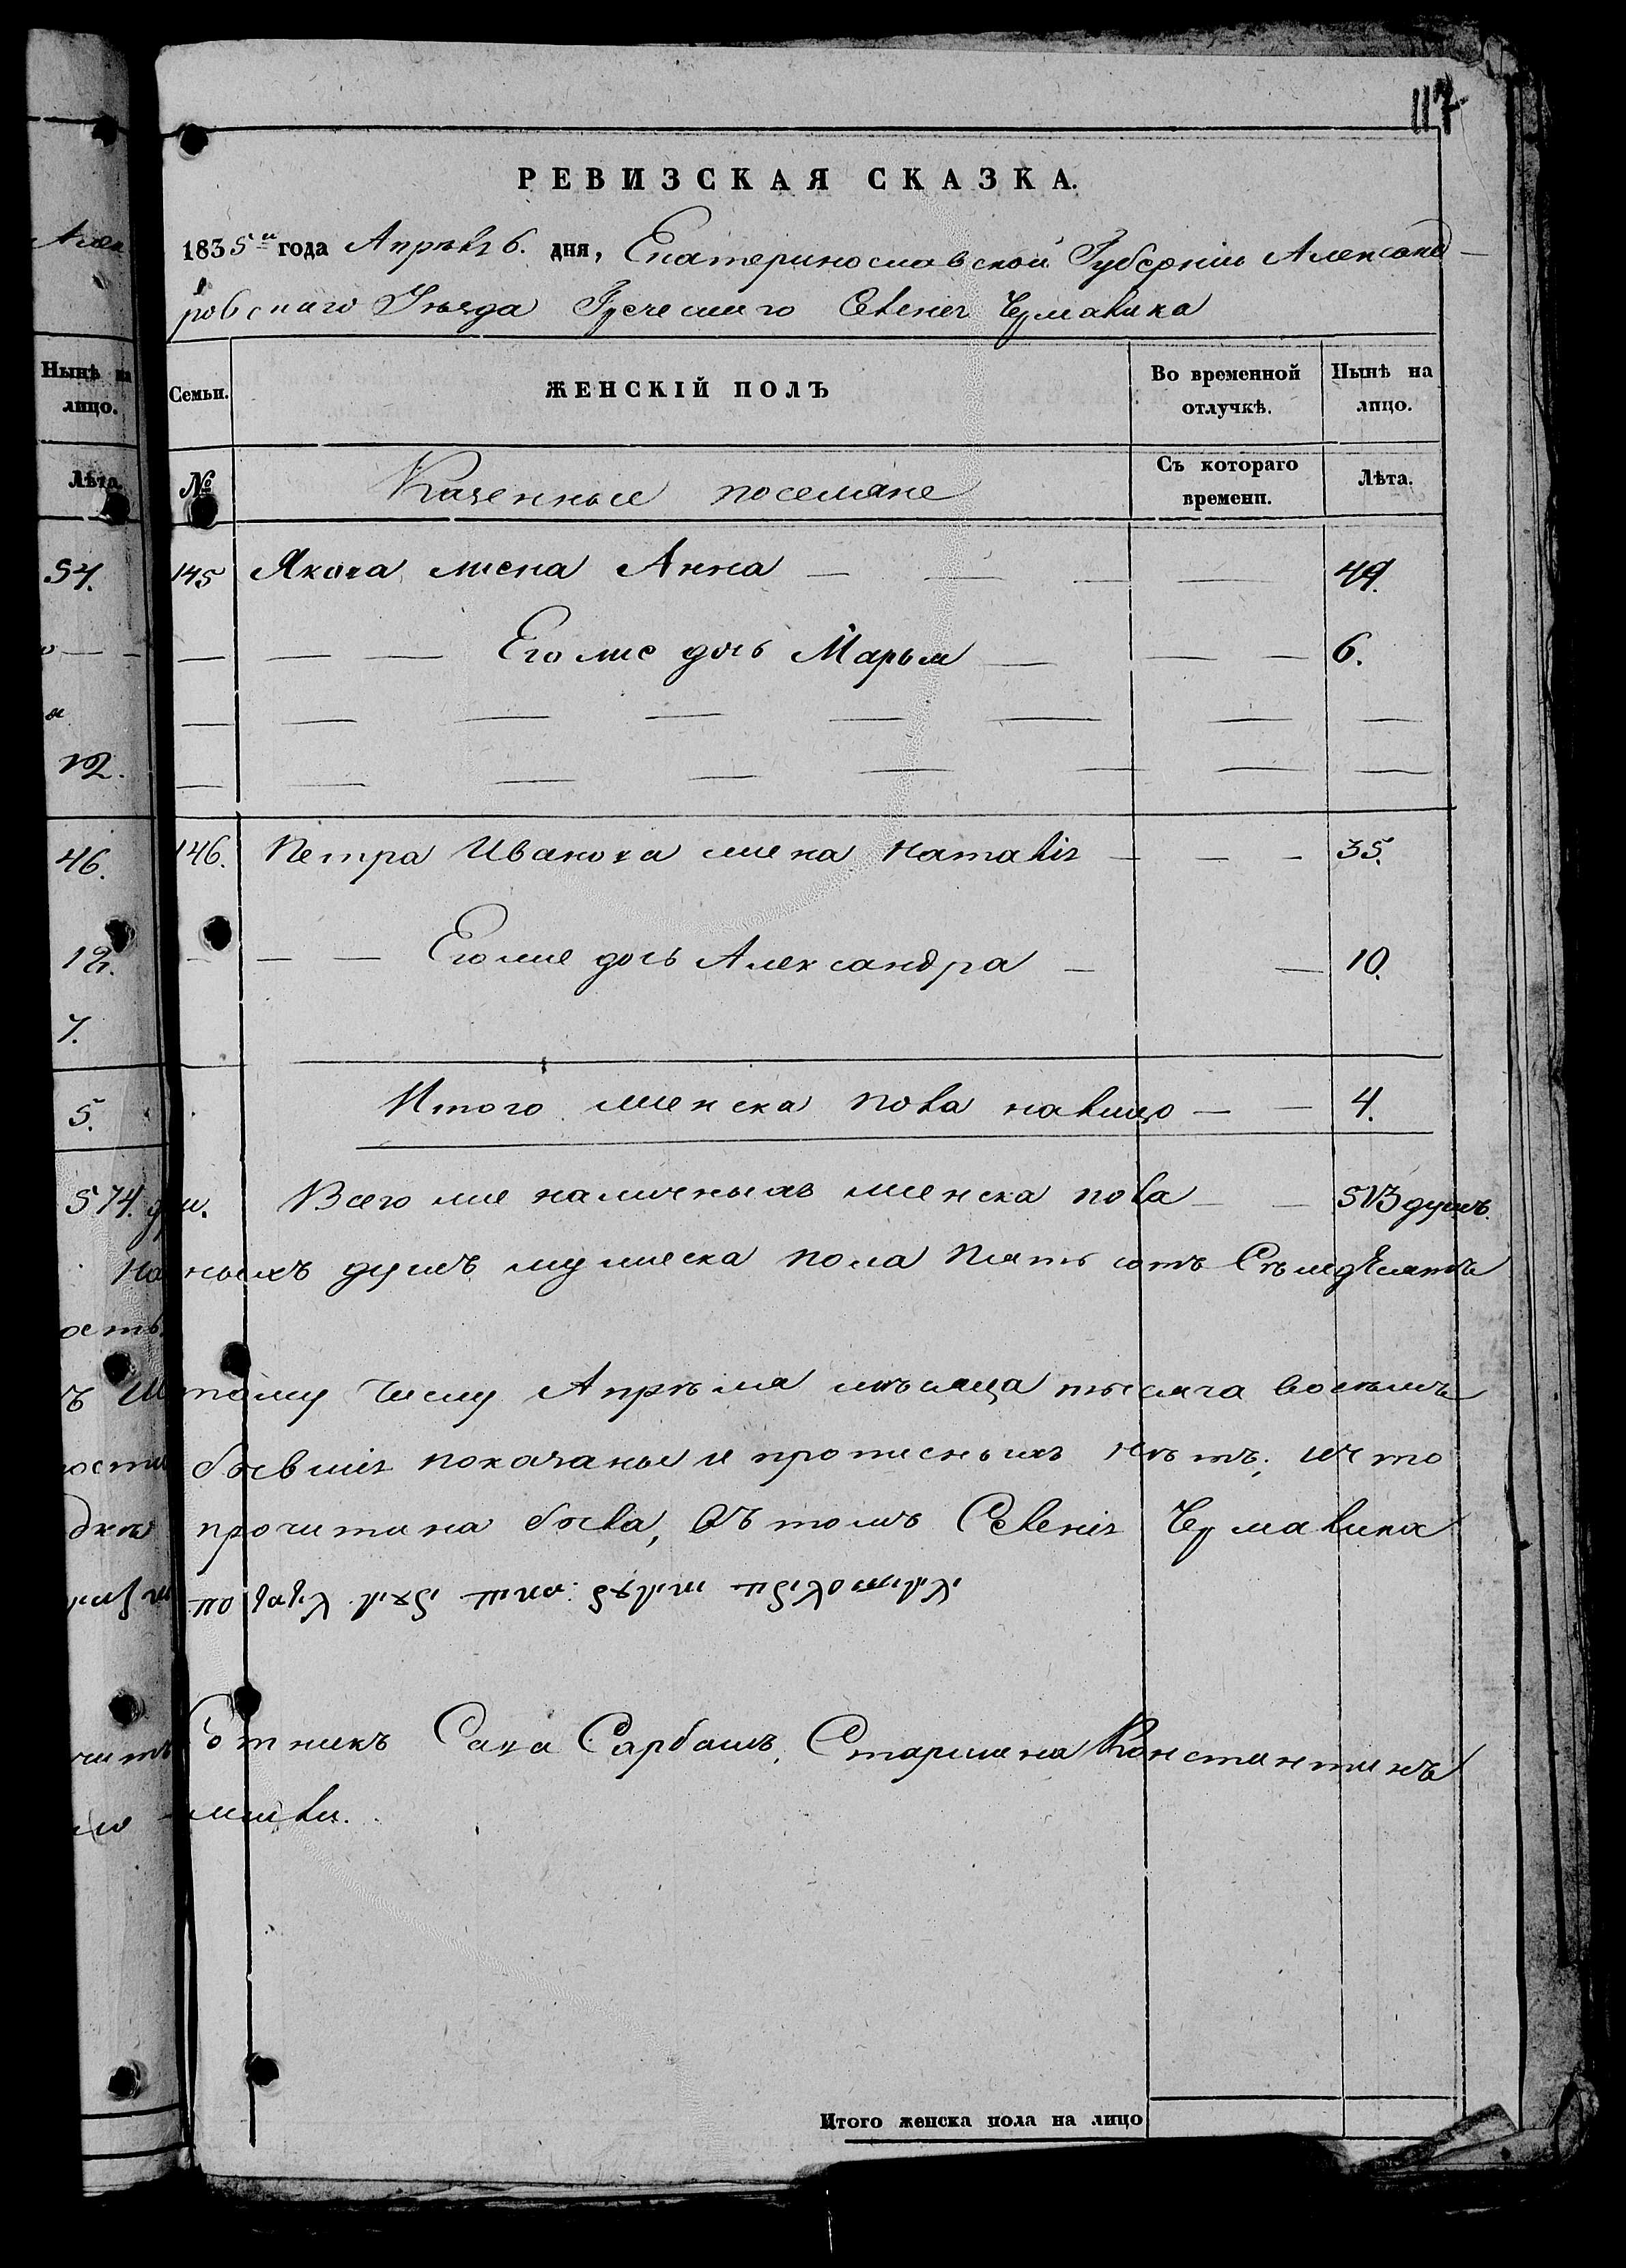 117
РЕВИЗСКАЯ СКАЗКА.
1835го года Апрѣля 6. дня, Екатеринославской Губерніи Александ-
ровскаго Уѣзда Греческаго Селенія Чермалика
Семьи.
ЖЕНСКІЙ ПОЛЪ
Во временной отлучкѣ.
Нынѣ на лицо.
№
Казенные поселяне
Съ котораго времени.
Лѣта.
145 Якова жена Анна — — — — 49.
— — — Его же дочь Марья — — — 6.
146. Петра Иванова жена Наталія — — — 35.
— — — Его же дочь Александра — — 10.
Итого женска пола на лицо — — 4.
Всего же наличныхъ женска пола — — 513 душъ.
ныхъ душъ мужеска пола Пять сотъ Семдѣсятъ
тому числу Апрѣля мѣсяца тысяча восѣмъ
бывшіе показаны и прописныхъ нѣтъ; что
прочитана была, Въ томъ Селеніи Чермалика
Сотникъ Сава Сарбашъ, Старшина Константинъ
Итого женска пола на лицо
Нынѣ на
лицо.
Лѣта.
54.
12.
46.
12.
7.
5.
574. ду